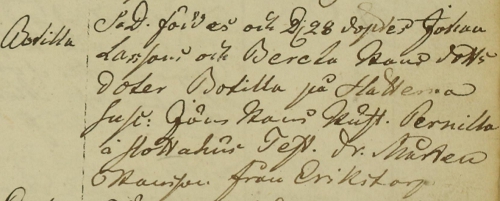 Botilla
S. D. föddes och D: 28 doptes Johan
Larssons och Bereta Hans dotts
doter Botilla på Slätterna
susc: Jöns Hans Hust. Pernilla
i slottahus Test. Dr. Mårten
Hansson från Erikstorp